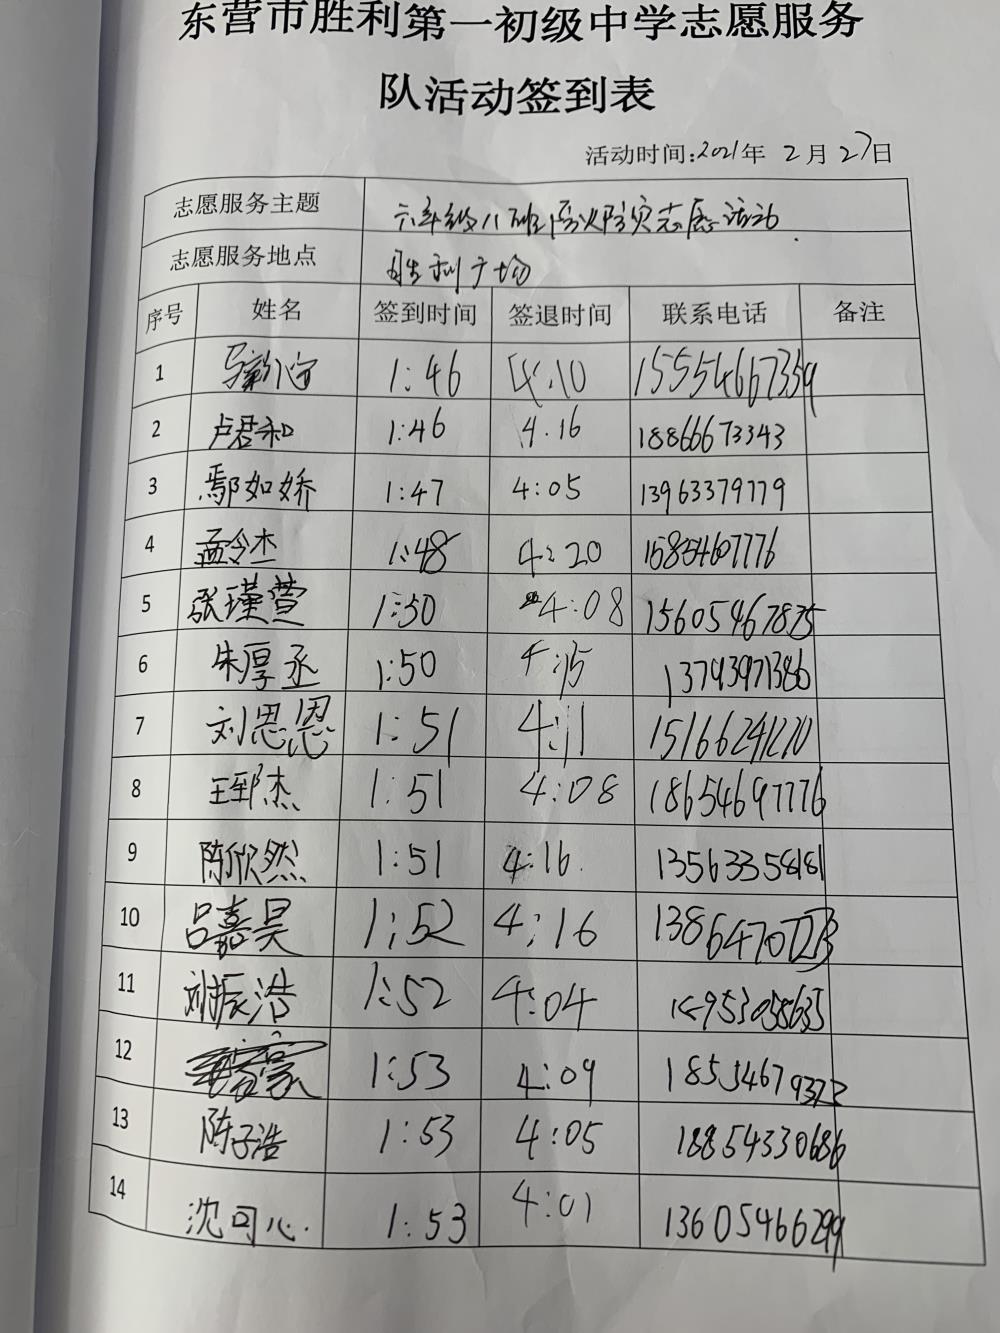 东营市胜利第一初级中学志愿服务
队活动签到表
活动时间:2021年 2月 27日
志愿服务主题 六年级八班 志愿活动
志愿服务地点 胜利广场
序号 姓名 签到时间 签退时间 联系电话 备注
1 1:46 4:10 15554667359
2 卢君和 1:46 4.16 18866673343
3 鄢如娇 1:47 4:05 13963379779
4 孟令杰 1:48 4:20 15854607776
5 张瑾萱 1:50 4:08 15605467875
6 朱厚丞 1:50 4:15 13793971386
7 刘思恩 1:51 4:11 15166241270
8 王郅杰 1:51 4:08 18654697776
9 陈欣然 1:51 4:16 13563358181
10 吕嘉昊 1:52 4:16
11 刘振浩 1:52 4:04
12 1:53 4:09 18554679372
13 陈子浩 1:53 4:05 18854330686
14 沈可心 1:53 4:01 13605466299